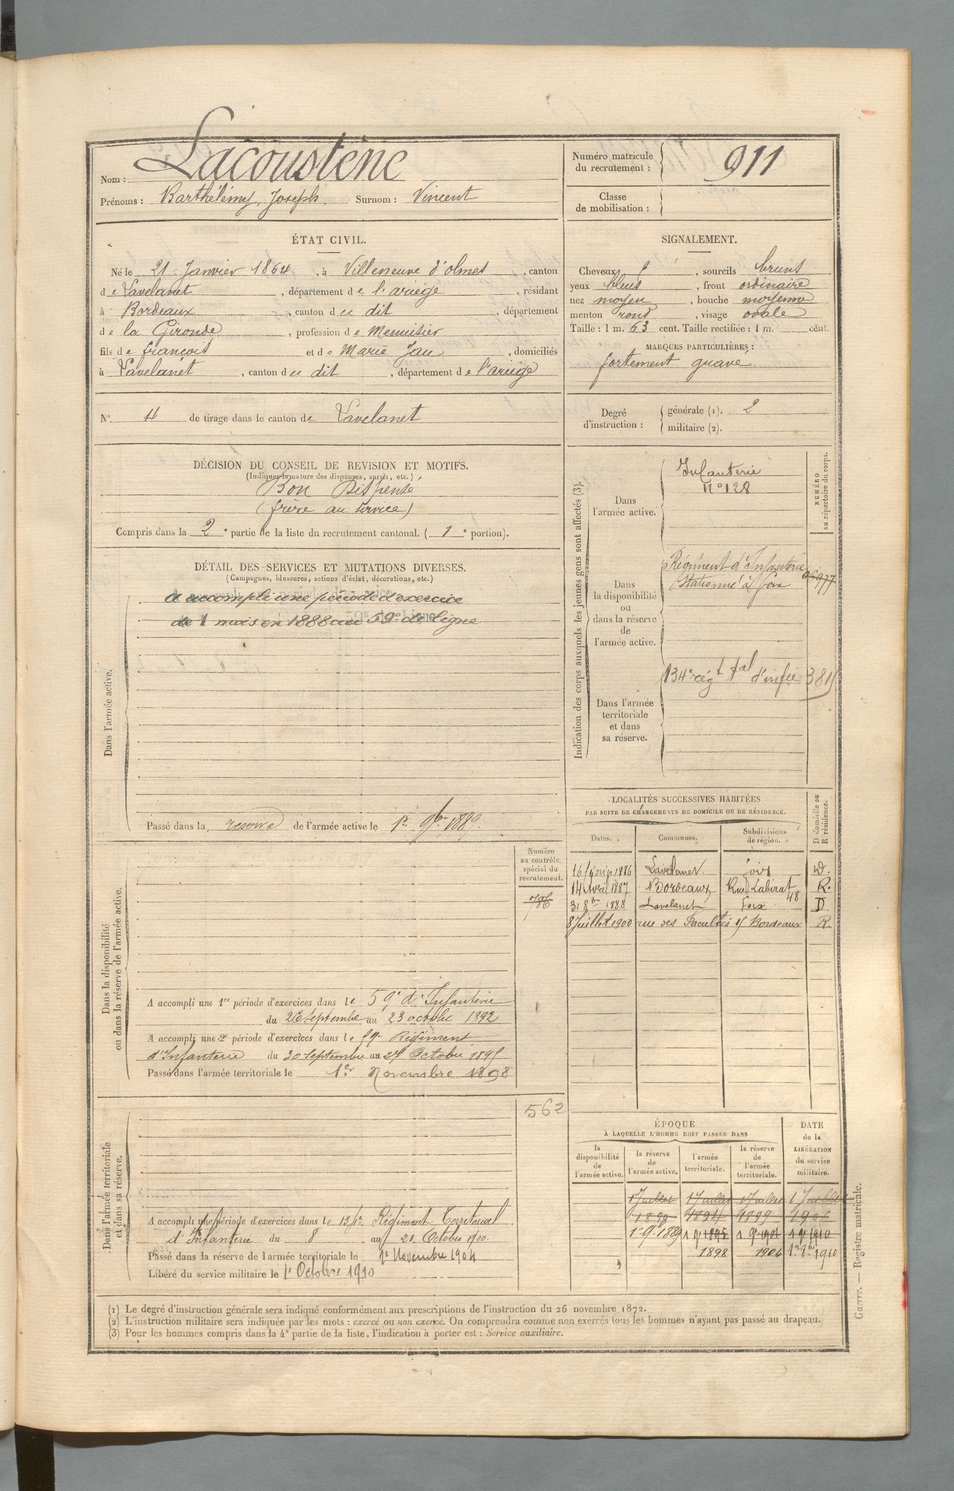 Nom : Lacoustène
Prénoms : Barthélémy, Joseph. Surnom : Vincent
Numéro matricule du recrutement : 911
Classe de mobilisation :
ÉTAT CIVIL.
Né le 21 Janvier 1864, à Villeneuve d'olmes, canton
de Lavelanet, département de l'ariège, résidant
à Bordeaux, canton du dit, département
de la Gironde, profession de Menuisier
fils de françois et de Marie Jau, domiciliés
à Lavelanet, canton du dit, département de l'ariège
SIGNALEMENT.
Cheveux d°, sourcils bruns
yeux bleus, front ordinaire
nez moyen, bouche moyenne
menton rond, visage ovale
Taille : 1 m. 63 cent. Taille rectifiée : 1 m. cent.
MARQUES PARTICULIÈRES :
fortement gravé
N° 4 de tirage dans le canton de Lavelanet
Degré d'instruction : générale (1). 2
militaire (2).
DÉCISION DU CONSEIL DE REVISION ET MOTIFS.
(Indiquer la nature des dispenses, sursis, etc.)
Bon Dispensé
(frère au service)
Compris dans la 2e partie de la liste du recrutement cantonal. (1e portion).
DÉTAIL DES SERVICES ET MUTATIONS DIVERSES.
(Campagnes, blessures, actions d'éclat, décorations, etc.)
Dans l'armée active.
a accompli une période d'exercice
de 1 mois en 1888 au 59e de ligne
Passé dans la réserve de l'armée active le 1er 9bre 1889.
Indication des corps auxquels les jeunes gens sont affectés (3).
NUMÉRO au répertoire du corps.
Dans l'armée active.
Infanterie
N° 128
Dans la disponibilité ou dans la réserve de l'armée active.
Régiment d'Infanterie
Stationné à foix
Dans l'armée territoriale et dans sa réserve.
134e régt tal d'infie 381
LOCALITÉS SUCCESSIVES HABITÉES
PAR SUITE DE CHANGEMENTS DE DOMICILE OU DE RÉSIDENCE.
Dates. Communes. Subdivisions de région. D domicile ou R résidence.
1886 Lavelanet foix D.
14 Avril 1887 Bordeaux Rue Labirat 48 R.
31 8bre 1888 Lavelanet foix D
8 Juillet 1900 rue des Facultés 9 Bordeaux R.
Dans la disponibilité ou dans la réserve de l'armée active.
Numéro au contrôle spécial du recrutement.
786
A accompli une 1re période d'exercices dans le 59e d'Infanterie
du 26 septembre au 23 octobre 1892
A accompli une 2e période d'exercices dans le 59e Régiment
d'Infanterie du 30 septembre au 27 Octobre 1895
Passé dans l'armée territoriale le 1er Novembre 1898
Dans l'armée territoriale et dans sa réserve.
562
A accompli une période d'exercices dans le 134e Régiment Territorial
d'Infanterie du 8 au 20 Octobre 1900
Passé dans la réserve de l'armée territoriale le 1er Novembre 1904
Libéré du service militaire le 1er Octobre 1910
ÉPOQUE
À LAQUELLE L'HOMME DOIT PASSER DANS
DATE de la LIBÉRATION du service militaire.
la disponibilité de l'armée active. la réserve de l'armée active. l'armée territoriale. la réserve de l'armée territoriale.
1 Juillet 1 Juillet 1 Juillet 1 Juillet
1894 1899
1898 1904 1910
(1) Le degré d'instruction générale sera indiqué conformément aux prescriptions de l'instruction du 26 novembre 1872.
(2) L'instruction militaire sera indiquée par les mots : exercé ou non exercé. On comprendra comme non exercés tous les hommes n'ayant pas passé au drapeau.
(3) Pour les hommes compris dans la 4e partie de la liste, l'indication à porter est : Service auxiliaire.
Guerre. — Registre matricule.